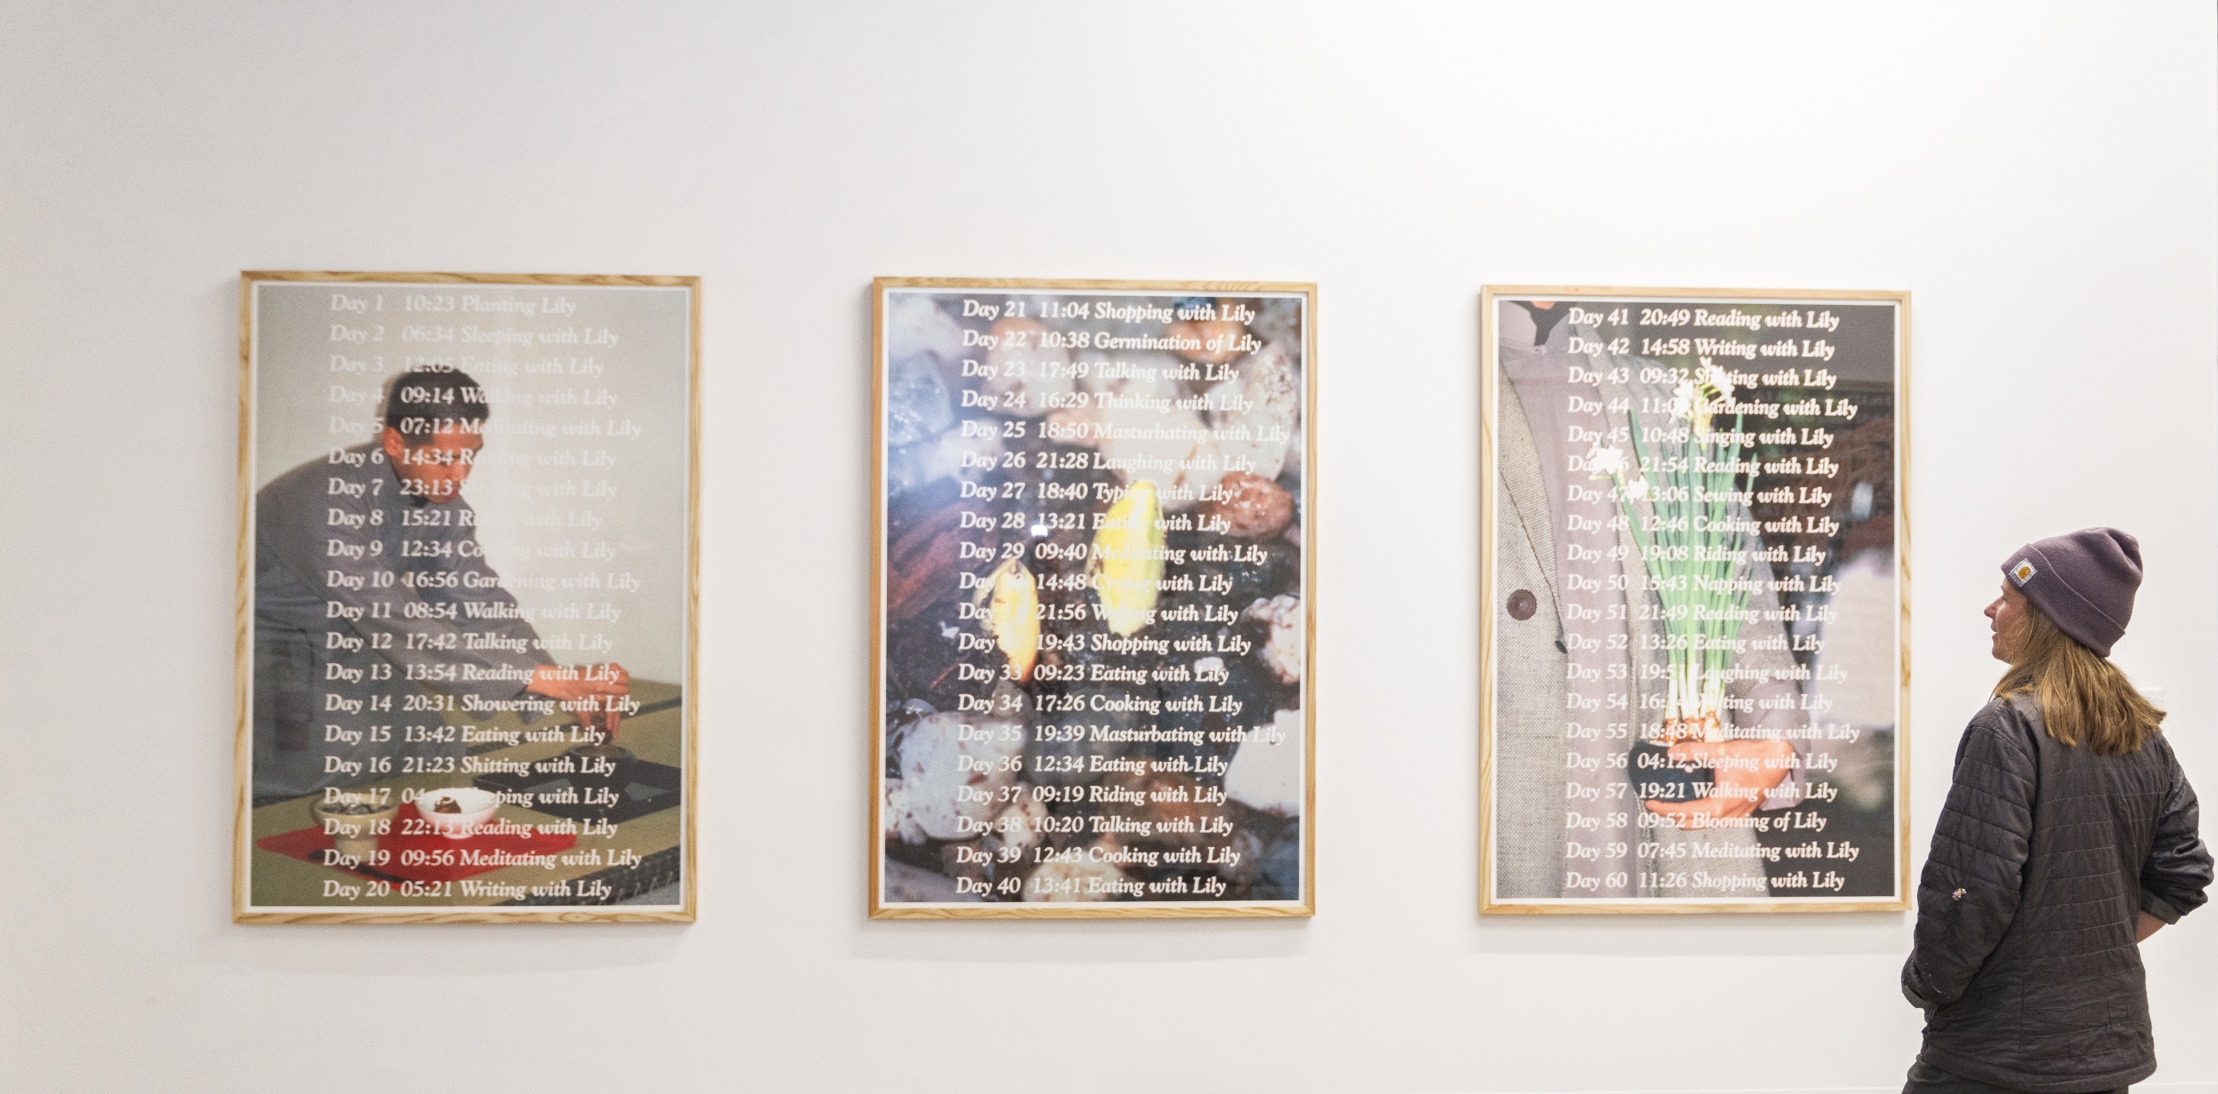 Day 1 10:23 Planting Lily
Day 2 06:34 Sleeping with Lily
Day 3 12:05 Eating with Lily
Day 4 09:14 Walking with Lily
Day 5 07:12 Meditating with Lily
Day 6 14:34 with Lily
Day 7 23:13 with Lily
Day 8 15:21 with Lily
Day 9 12:34 Cooking with Lily
Day 10 16:56 Gardening with Lily
Day 11 08:54 Walking with Lily
Day 12 17:42 Talking with Lily
Day 13 13:54 Reading with Lily
Day 14 20:31 Showering with Lily
Day 15 13:42 Eating with Lily
Day 16 21:23 Shitting with Lily
Day 17 Sleeping with Lily
Day 18 22:13 Reading with Lily
Day 19 09:56 Meditating with Lily
Day 20 05:21 Writing with Lily
Day 21 11:04 Shopping with Lily
Day 22 10:38 Germination of Lily
Day 23 17:49 Talking with Lily
Day 24 16:29 Thinking with Lily
Day 25 18:50 Masturbating with Lily
Day 26 21:28 Laughing with Lily
Day 27 18:40 Typing with Lily
Day 28 13:21 Eating with Lily
Day 29 09:40 Meditating with Lily
Day 14:48 with Lily
Day 21:56 with Lily
Day 19:43 Shopping with Lily
Day 33 09:23 Eating with Lily
Day 34 17:26 Cooking with Lily
Day 35 19:39 Masturbating with Lily
Day 36 12:34 Eating with Lily
Day 37 09:19 Riding with Lily
Day 38 10:20 Talking with Lily
Day 39 12:43 Cooking with Lily
Day 40 13:41 Eating with Lily
Day 41 20:49 Reading with Lily
Day 42 14:58 Writing with Lily
Day 43 09:32 with Lily
Day 44 Gardening with Lily
Day 45 10:48 Singing with Lily
21:54 Reading with Lily
Day 47 13:06 Sewing with Lily
Day 48 12:46 Cooking with Lily
Day 49 19:08 Riding with Lily
Day 50 15:43 Napping with Lily
Day 51 21:49 Reading with Lily
Day 52 13:26 Eating with Lily
Day 53 Laughing with Lily
Day 54 with Lily
Day 55 18:48 Meditating with Lily
Day 56 04:12 Sleeping with Lily
Day 57 19:21 Walking with Lily
Day 58 09:52 Blooming of Lily
Day 59 07:45 Meditating with Lily
Day 60 11:26 Shopping with Lily